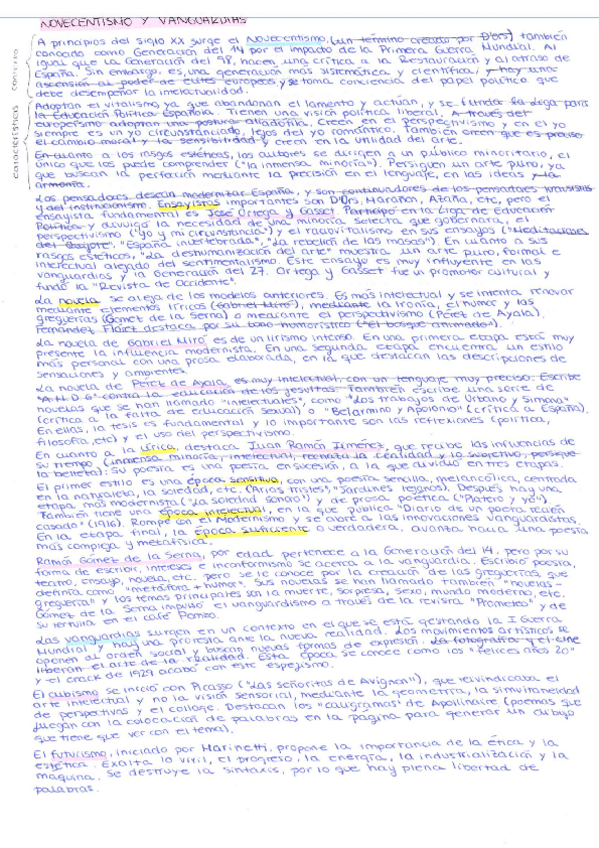 NOVECENTISMO Y VANGUARDIAS
contexto
A principios del siglo XX surge el Novecentismo, (un término creado por D'ors) también
conocido como Generación del 14 por el impacto de la Primera Guerra Mundial. Al
igual que la Generación del 98, hacen una crítica a la Restauración y al atraso de
España. Sin embargo, es una generación más sistemática y científica, y hay una
ascensión al poder de élites europeos y se toma conciencia del papel político que
debe desempeñar la intelectualidad.
características
Adoptan el vitalismo ya que abandonan el lamento y actúan, y se funda la Liga para
la Educación Política Española. Tienen una visión política liberal. A través del
europeísmo adoptan una postura aliadófila. Creen en el perspectivismo y en el yo
siempre es un yo circunstanciado, lejos del yo romántico. También creen que es preciso
el cambio moral y la sensibilidad y creen en la utilidad del arte.
En cuanto a los rasgos estéticos, los autores se dirigen a un público minoritario, el
único que les puede comprender ("la inmensa minoría"). Persiguen un arte puro, ya
que buscan la perfección mediante la precisión en el lenguaje, en las ideas y la
armonía.
Los pensadores desean modernizar España, y son continuadores de los pensadores krausistas
y del institucionismo. Ensayistas importantes son D'Ors, Marañón, Azaña, etc, pero el
ensayista fundamental es José Ortega y Gasset. Participó en la Liga de Educación
Política y divulgó la necesidad de una minoría selecta que gobernara, el
perspectivismo ("Yo y mi circunstancia") y el raciovitalismo en sus ensayos ("Meditaciones
del Quijote", "España invertebrada", "La rebelión de las masas"). En cuanto a sus
rasgos estéticos, "La deshumanización del arte" muestra un arte puro, formal e
intelectual alejado del sentimentalismo. Este ensayo es muy influyente en las
vanguardias y la Generación del 27. Ortega y Gasset fue un promotor cultural y
fundó la "Revista de Occidente".
La novela se aleja de los modelos anteriores. Es más intelectual y se intenta renovar
mediante elementos líricos (Gabriel Miró), mediante la ironía, el humor y las
greguerías (Gómez de la Serna) o mediante el perspectivismo (Pérez de Ayala).
Fernández Flórez destaca por su tono humorístico ("El bosque animado").
La novela de Gabriel Miró es de un lirismo intenso. En una primera etapa está muy
presente la influencia modernista. En una segunda etapa encuentra un estilo
más personal con una prosa elaborada, en la que destacan las descripciones de
sensaciones y ambientes.
La novela de Pérez de Ayala, es muy intelectual, con un lenguaje muy preciso. Escribe
"A.M.D.G" contra la educación de los jesuitas. También escribe una serie de
novelas que se han llamado "intelectuales", como "Los trabajos de Urbano y Simona"
(crítica a la falta de educación sexual) o "Belarmino y Apolonio" (crítica a España).
En ellas, la tesis es fundamental y lo importante son las reflexiones (política,
filosofía, etc) y el uso del perspectivismo.
En cuanto a la lírica, destaca Juan Ramón Jiménez, que recibe las influencias de
su tiempo (inmensa minoría, intelectual, rechaza la realidad y lo subjetivo, persigue
la belleza). Su poesía es una poesía en sucesión, a la que dividió en tres etapas.
El primer estilo es una época sensitiva, con una poesía sencilla, melancólica, centrada
en la naturaleza, la soledad, etc. (Arias tristes", "Jardines lejanos). Después hay una
etapa más modernista ("La soledad sonora") y de prosa poética ("Platero y yo").
También tiene una época intelectual, en la que publica "Diario de un poeta recién
casado" (1916). Rompe con el Modernismo y se abre a las innovaciones vanguardistas.
En la etapa final, la época suficiente o verdadera, avanza hacia una poesía
más compleja y metafísica.
Ramón Gómez de la Serna, por edad pertenece a la Generación del 14, pero por su
forma de escribir, intereses e inconformismo se acerca a la vanguardia. Escribió poesía,
teatro, ensayo, novela, etc. pero se le conoce por la creación de las greguerías, que
definía como, "metáfora + humor". Sus novelas se han llamado también "novelas -
greguería" y los temas principales son la muerte, sorpresa, sexo, mundo moderno, etc.
Gómez de la Serna impulsó el vanguardismo a través de la revista "Prometeo" y de
su tertulia en el café Pombo.
Las vanguardias surgen en un contexto en el que se está gestando la I Guerra
Mundial y hay una protesta ante la nueva realidad. Los movimientos artísticos se
oponen al orden social y buscan nuevas formas de expresión. La fotografía y el cine
liberan el arte de la realidad. Esta época se conoce como los "Felices años 20"
y el crack de 1929 acabó con este espejismo.
El cubismo se inició con Picasso ("Las señoritas de Avignon"), que reivindicaba el
arte intelectual y no la visión sensorial, mediante la geometría, la simultaneidad
de perspectivas y el collage. Destacan los "caligramas" de Apollinaire (poemas que
juegan con la colocación de palabras en la página para generar un dibujo
que tiene que ver con el tema).
El futurismo, iniciado por Marinetti, propone la importancia de la ética y la
estética. Exalta lo viril, el progreso, la energía, la industrialización y la
máquina. Se destruye la sintaxis, por lo que hay plena libertad de
palabras.